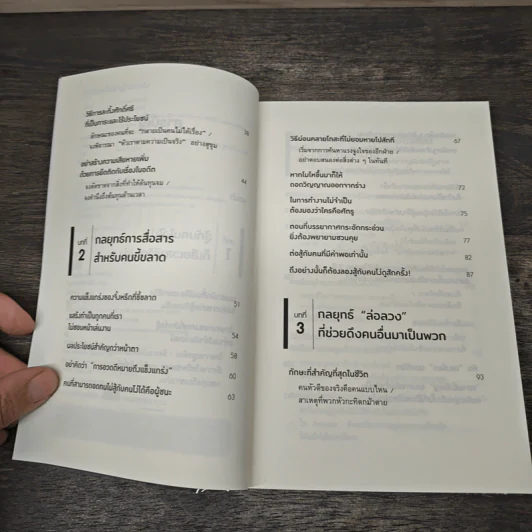 วิธีการละทิ้งศักดิ์ศรี
ที่เป็นภาระและไร้ประโยชน์
ลักษณะของคนที่จะ "กลายเป็นคนไม่ได้เรื่อง" /
จงพิจารณา "ตัวเราตามความเป็นจริง" อย่างสุขุม
36
อย่าสร้างความเสียหายเพิ่ม
ด้วยการยึดติดกับเรื่องในอดีต
44
จงตัดขาดจากสิ่งที่ทำให้ต้นทุนจม /
จงคำนึงถึงต้นทุนด้านเวลา
บทที่
2
กลยุทธ์การสื่อสาร
สำหรับคนขี้ขลาด
ความแข็งแกร่งของจิ้งหรีดที่ขี้ขลาด
51
แสร้งทำเป็นถูกคนที่เรา
ไม่ชอบหน้าเล่นงาน
54
ผลประโยชน์สำคัญกว่าหน้าตา
58
อย่าคิดว่า "การอวดดีหมายถึงแข็งแกร่ง"
60
คนที่สามารถอดทนไม่สู้กับคนไม่ได้คือผู้ชนะ
63
วิธีผ่อนคลายโทสะที่ไม่ยอมหายไปสักที
67
เริ่มจากการค้นหาแรงจูงใจของอีกฝ่าย /
อย่าตอบสนองต่อสิ่งต่าง ๆ ในทันที
หากโมโหขึ้นมาก็ให้
ถอดวิญญาณออกจากร่าง
72
ในการทำงานไม่จำเป็น
ต้องมองว่าใครคือศัตรู
75
ตอนที่บรรยากาศกระอักกระอ่วน
ยิ่งต้องพยายามชวนคุย
77
ต่อสู้กับคนที่มีค่าพอเท่านั้น
82
ถึงอย่างนั้นก็ต้องลองสู้กับคนไม่ดูสักครั้ง!
87
บทที่
3
กลยุทธ์ "ล่อลวง"
ที่ช่วยดึงคนอื่นมาเป็นพวก
ทักษะที่สำคัญที่สุดในชีวิต
93
คนหัวดีของจริงคือคนแบบไหน /
สาเหตุที่พวกหัวกะทิตกม้าตาย